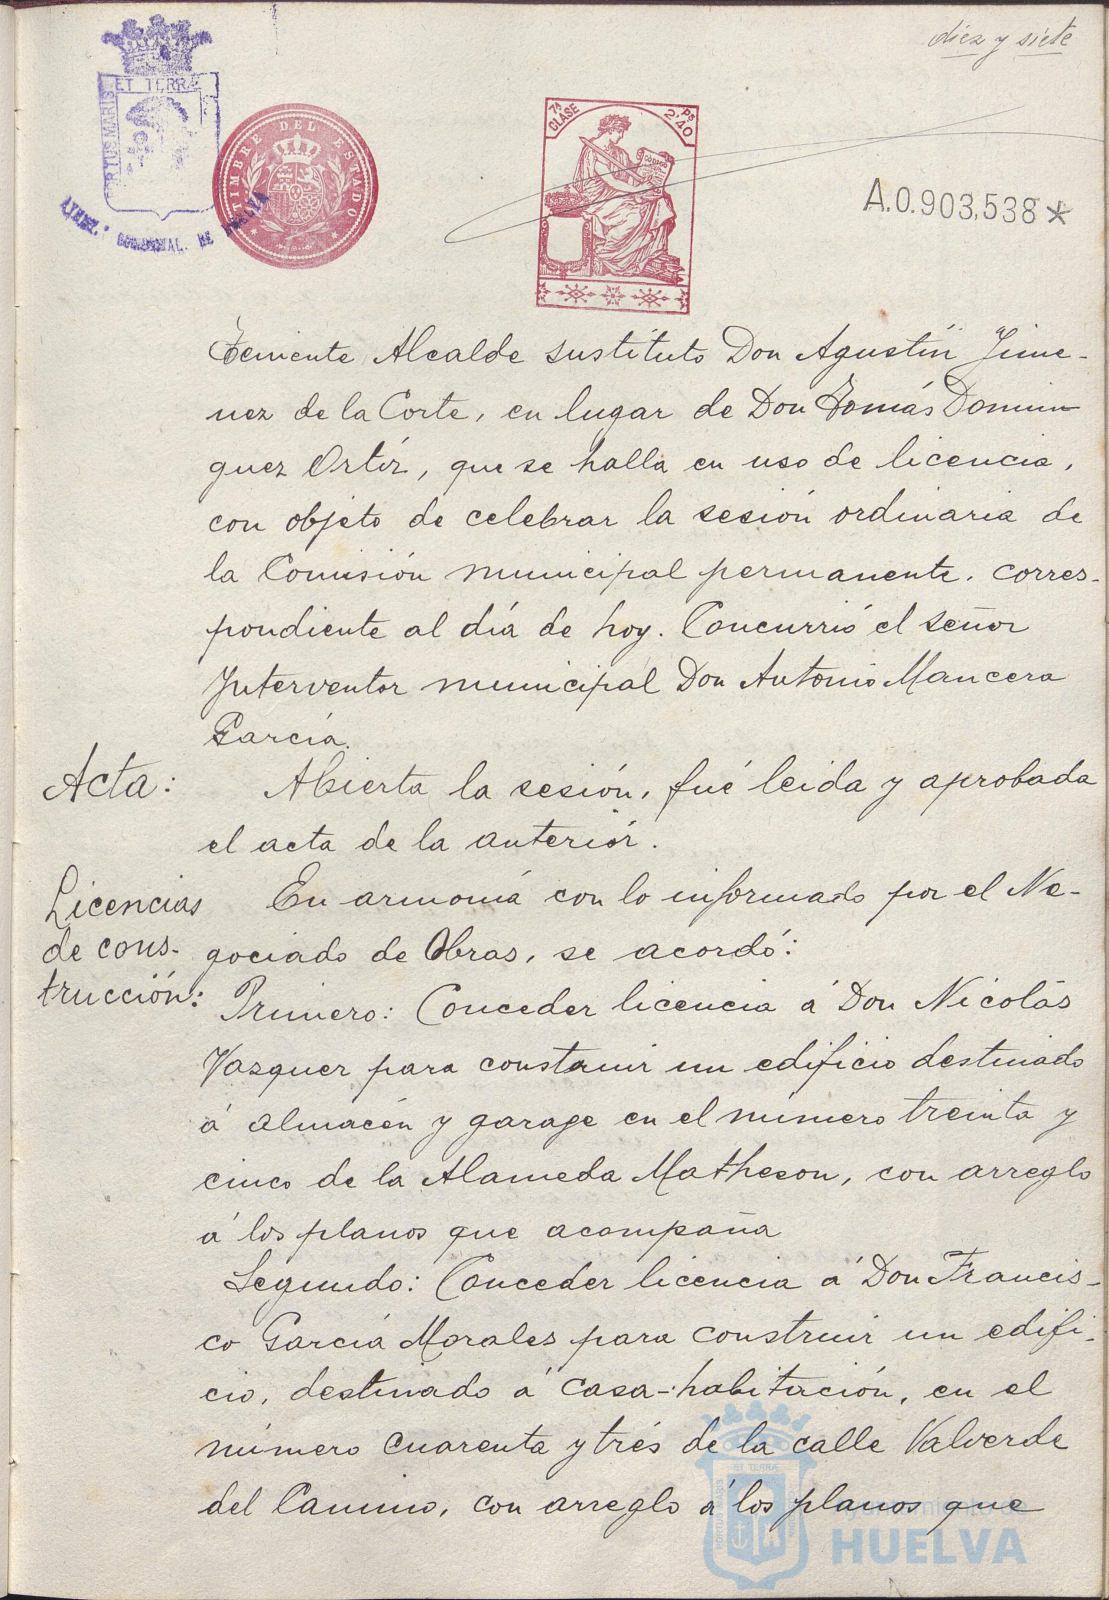 diez y siete
PORTUS MARIS ET TERRAE
AYUNT.º CONSTITUCIONAL. DE HUELVA
TIMBRE DEL ESTADO
7ª CLASE
Ps 2.40
CODIGO
A.0.903,538*
Teniente Alcalde sustituto Don Agustín Jime-
nez de la Corte, en lugar de Don Tomás Domin
guez Ortíz, que se halla en uso de licencia,
con objeto de celebrar la sesión ordinaria de
la Comisión municipal permanente, corres-
pondiente al día de hoy. Concurrió el señor
Interventor municipal Don Antonio Mancera
García.
Acta: Abierta la sesión, fué leida y aprobada
el acta de la anteriór.
Licencias En armonía con lo informado por el Ne-
de cons- gociado de Obras, se acordó:
trucción: Primero: Conceder licencia á Don Nicolás
Vazquez para construir un edificio destinado
á almacén y garage en el número treinta y
cinco de la Alameda Matheson, con arreglo
á los planos que acompaña
Segundo: Conceder licencia á Don Francis-
co García Morales para construir un edifi-
cio, destinado á casa-habitación, en el
número cuarenta y trés de la calle Valverde
del Camino, con arreglo á los planos que
Ayuntamiento de
HUELVA